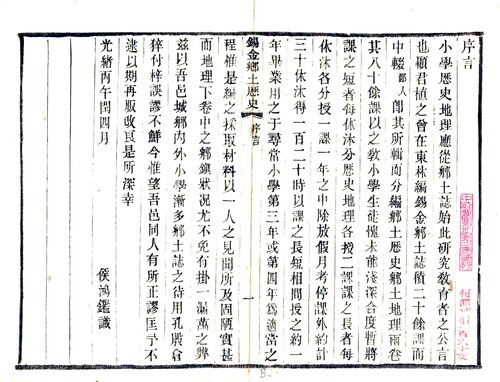 序言
小學歷史地理應從鄉土誌始此研究敎育者之公言
也顧君植之曾在東林編錫金鄉土誌積二十餘課而
中輟鄙人卽其所輯而分編鄉土歷史鄉土地理兩卷
其八十餘課以之敎小學生徒愧未能淺深合度暫將
課之短者每休沐分歷史地理各授二課課之長者每
休沐各分授一課一年之中除放假月考停課外約計
三十休沐得一百二十時以課之長短相間授之約一
年畢業用之于尋常小學第三年或第四年爲適當之
錫金鄉土歷史
序言
一
程惟是編之採取材料以一人之見聞所及固陋實甚
而地理下卷中之鄉鎭狀况尤不免有掛一漏萬之弊
茲以吾邑城鄉內外小學漸多鄉土誌之待用孔殷倉
猝付梓誤謬不鮮今惟望吾邑同人有所正謬匡予不
逮以期再版改良是所深幸
光緖丙午閏四月
侯鴻鑑識